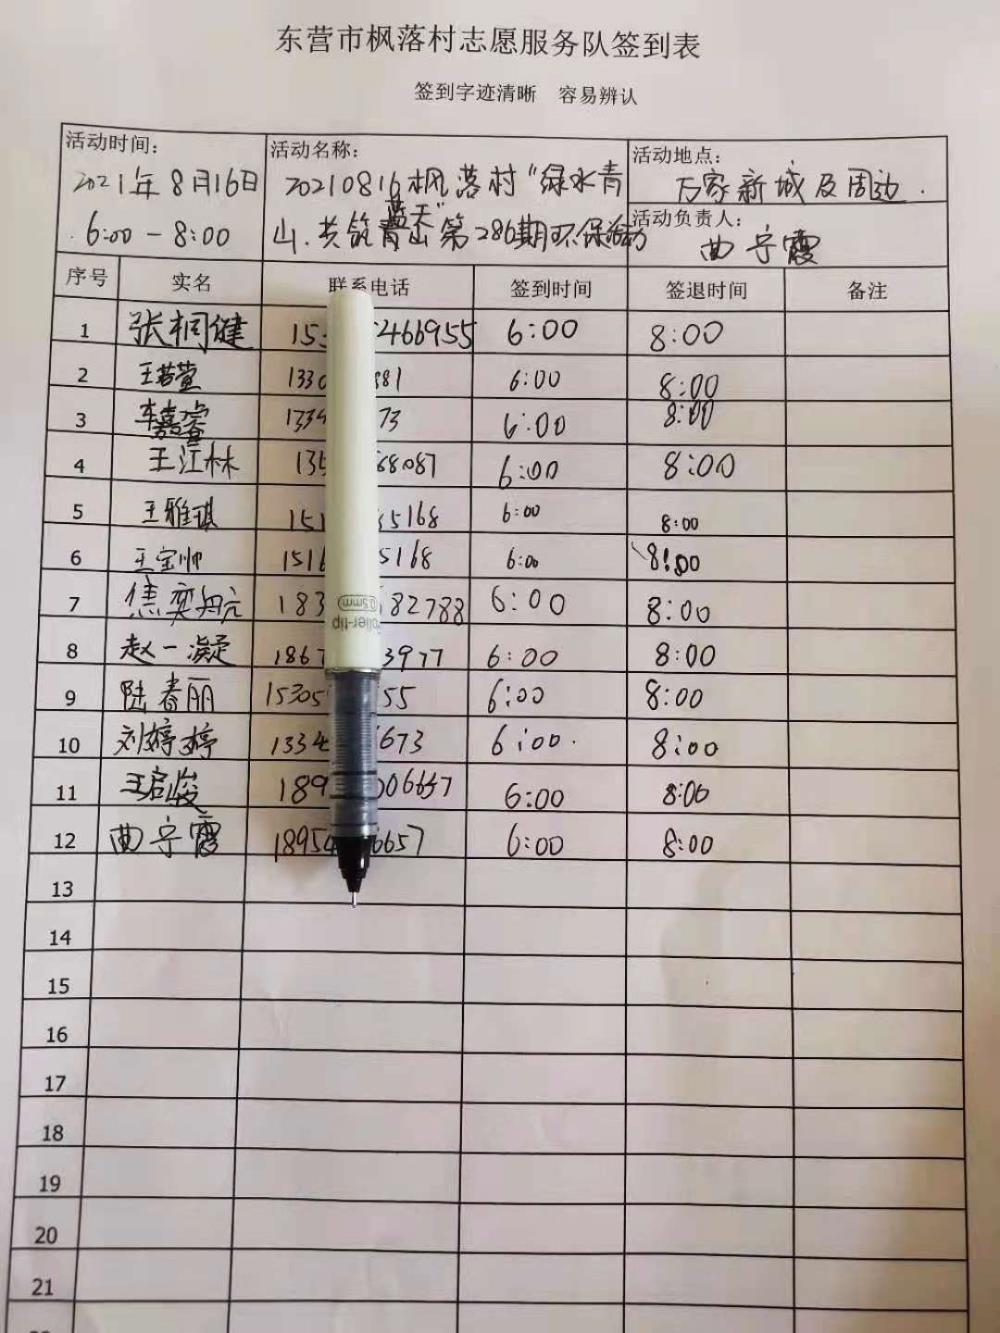 东营市枫落村志愿服务队签到表
签到字迹清晰 容易辨认
活动时间:
2021年8月16日
6:00-8:00
活动名称:
20210816枫落村“绿水青
山.共筑蓝天”第286期环保活动
活动地点:
万家新城及周边.
活动负责人:
曲宁霞
序号 实名 联系电话 签到时间 签退时间 备注
1 张桐健 15 466955 6:00 8:00
2 王若萱 1330 881 6:00 8:00
3 车嘉睿 1334 73 6:00 8:00
4 王江林 135 68087 6:00 8:00
5 王雅琪 151 85168 6:00 8:00
6 王宝帅 1516 5168 6:00 8:00
7 焦奕航 183 82788 6:00 8:00
8 赵一凝 1867 3977 6:00 8:00
9 陆春丽 15305 55 6:00 8:00
10 刘婷婷 1334 673 6:00. 8:00
11 王启峻 189 006657 6:00 8:00
12 曲宁霞 1895 6657 6:00 8:00
13
14
15
16
17
18
19
20
21
roller-tip
0.5mm